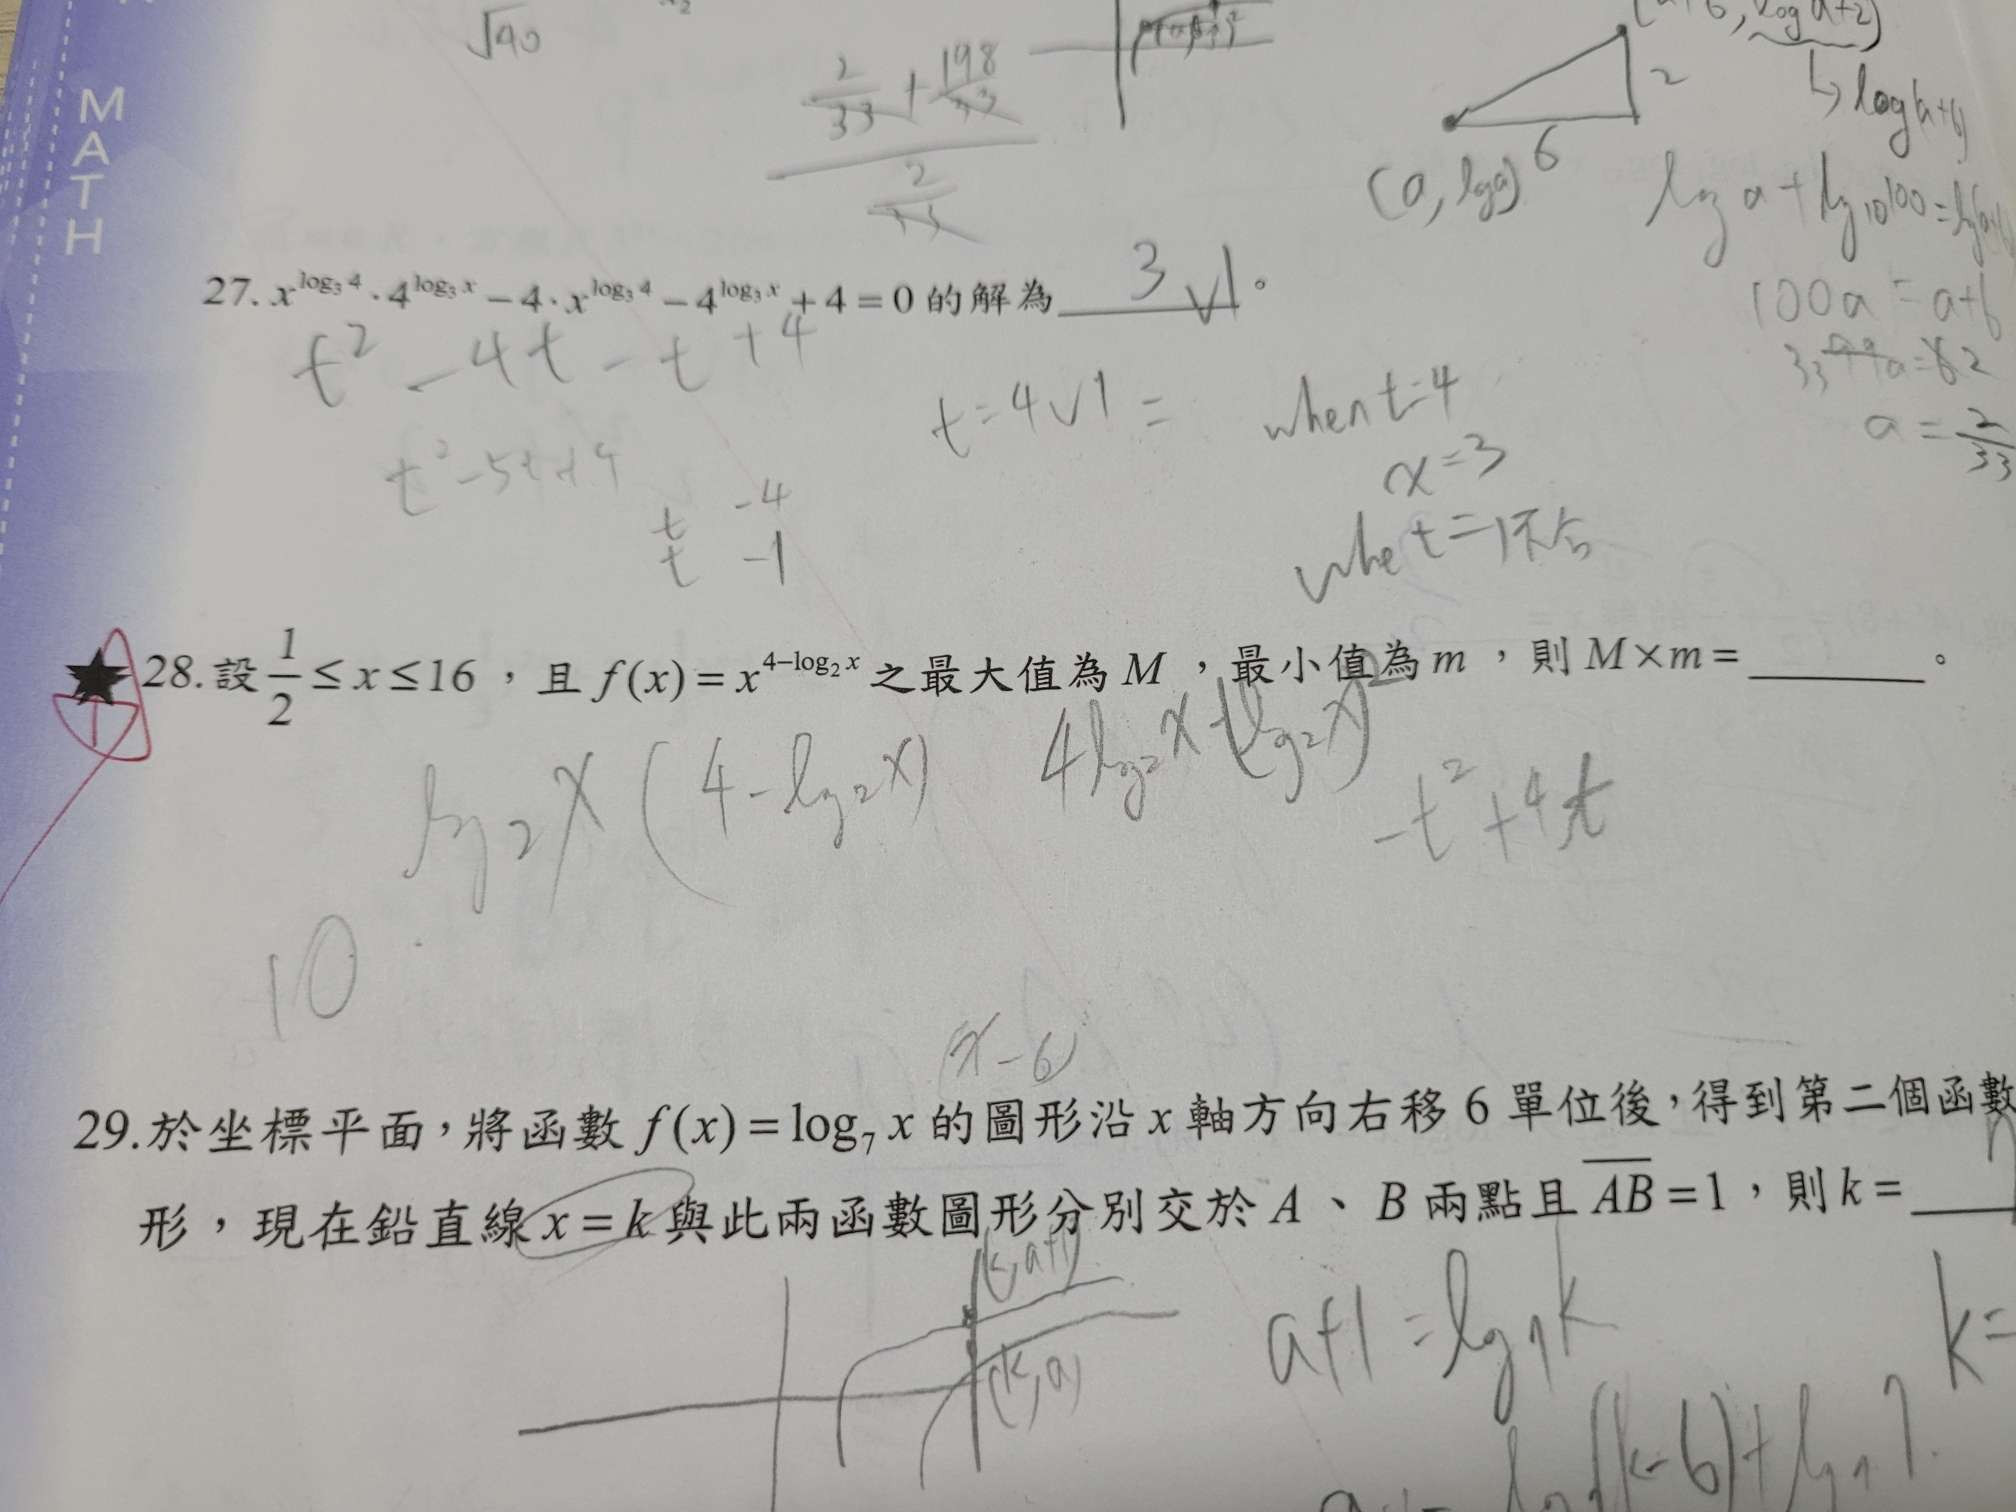 √40
2/33 + 198/33
2/33
2
6
(a, log a)
↳ log(a+6)
log a + log₁₀100 = log(a+6)
100a = a+6
a = 2/33
MATH
27. x^{log₃ 4} · 4^{log₃ x} − 4 · x^{log₃ 4} − 4^{log₃ x} + 4 = 0 的解為 3 ∨ 1。
t² − 4t − t + 4
t² − 5t + 4
t −4
t −1
t = 4 ∨ 1 =
when t=4
x=3
whe t=1不合
★28. 設 1/2 ≤ x ≤ 16，且 f(x) = x^{4−log₂ x} 之最大值為 M，最小值為 m，則 M×m = ______。
log₂X (4 − log₂X)
4log₂X − (log₂X)²
−t² + 4t
10
(x−6)
29. 於坐標平面，將函數 f(x) = log₇ x 的圖形沿 x 軸方向右移 6 單位後，得到第二個函數
形，現在鉛直線 x = k 與此兩函數圖形分別交於 A、B 兩點且 AB = 1，則 k =
(k, a+1)
(k, a)
a+1 = log₇k
k=
(k−6) + log₇7